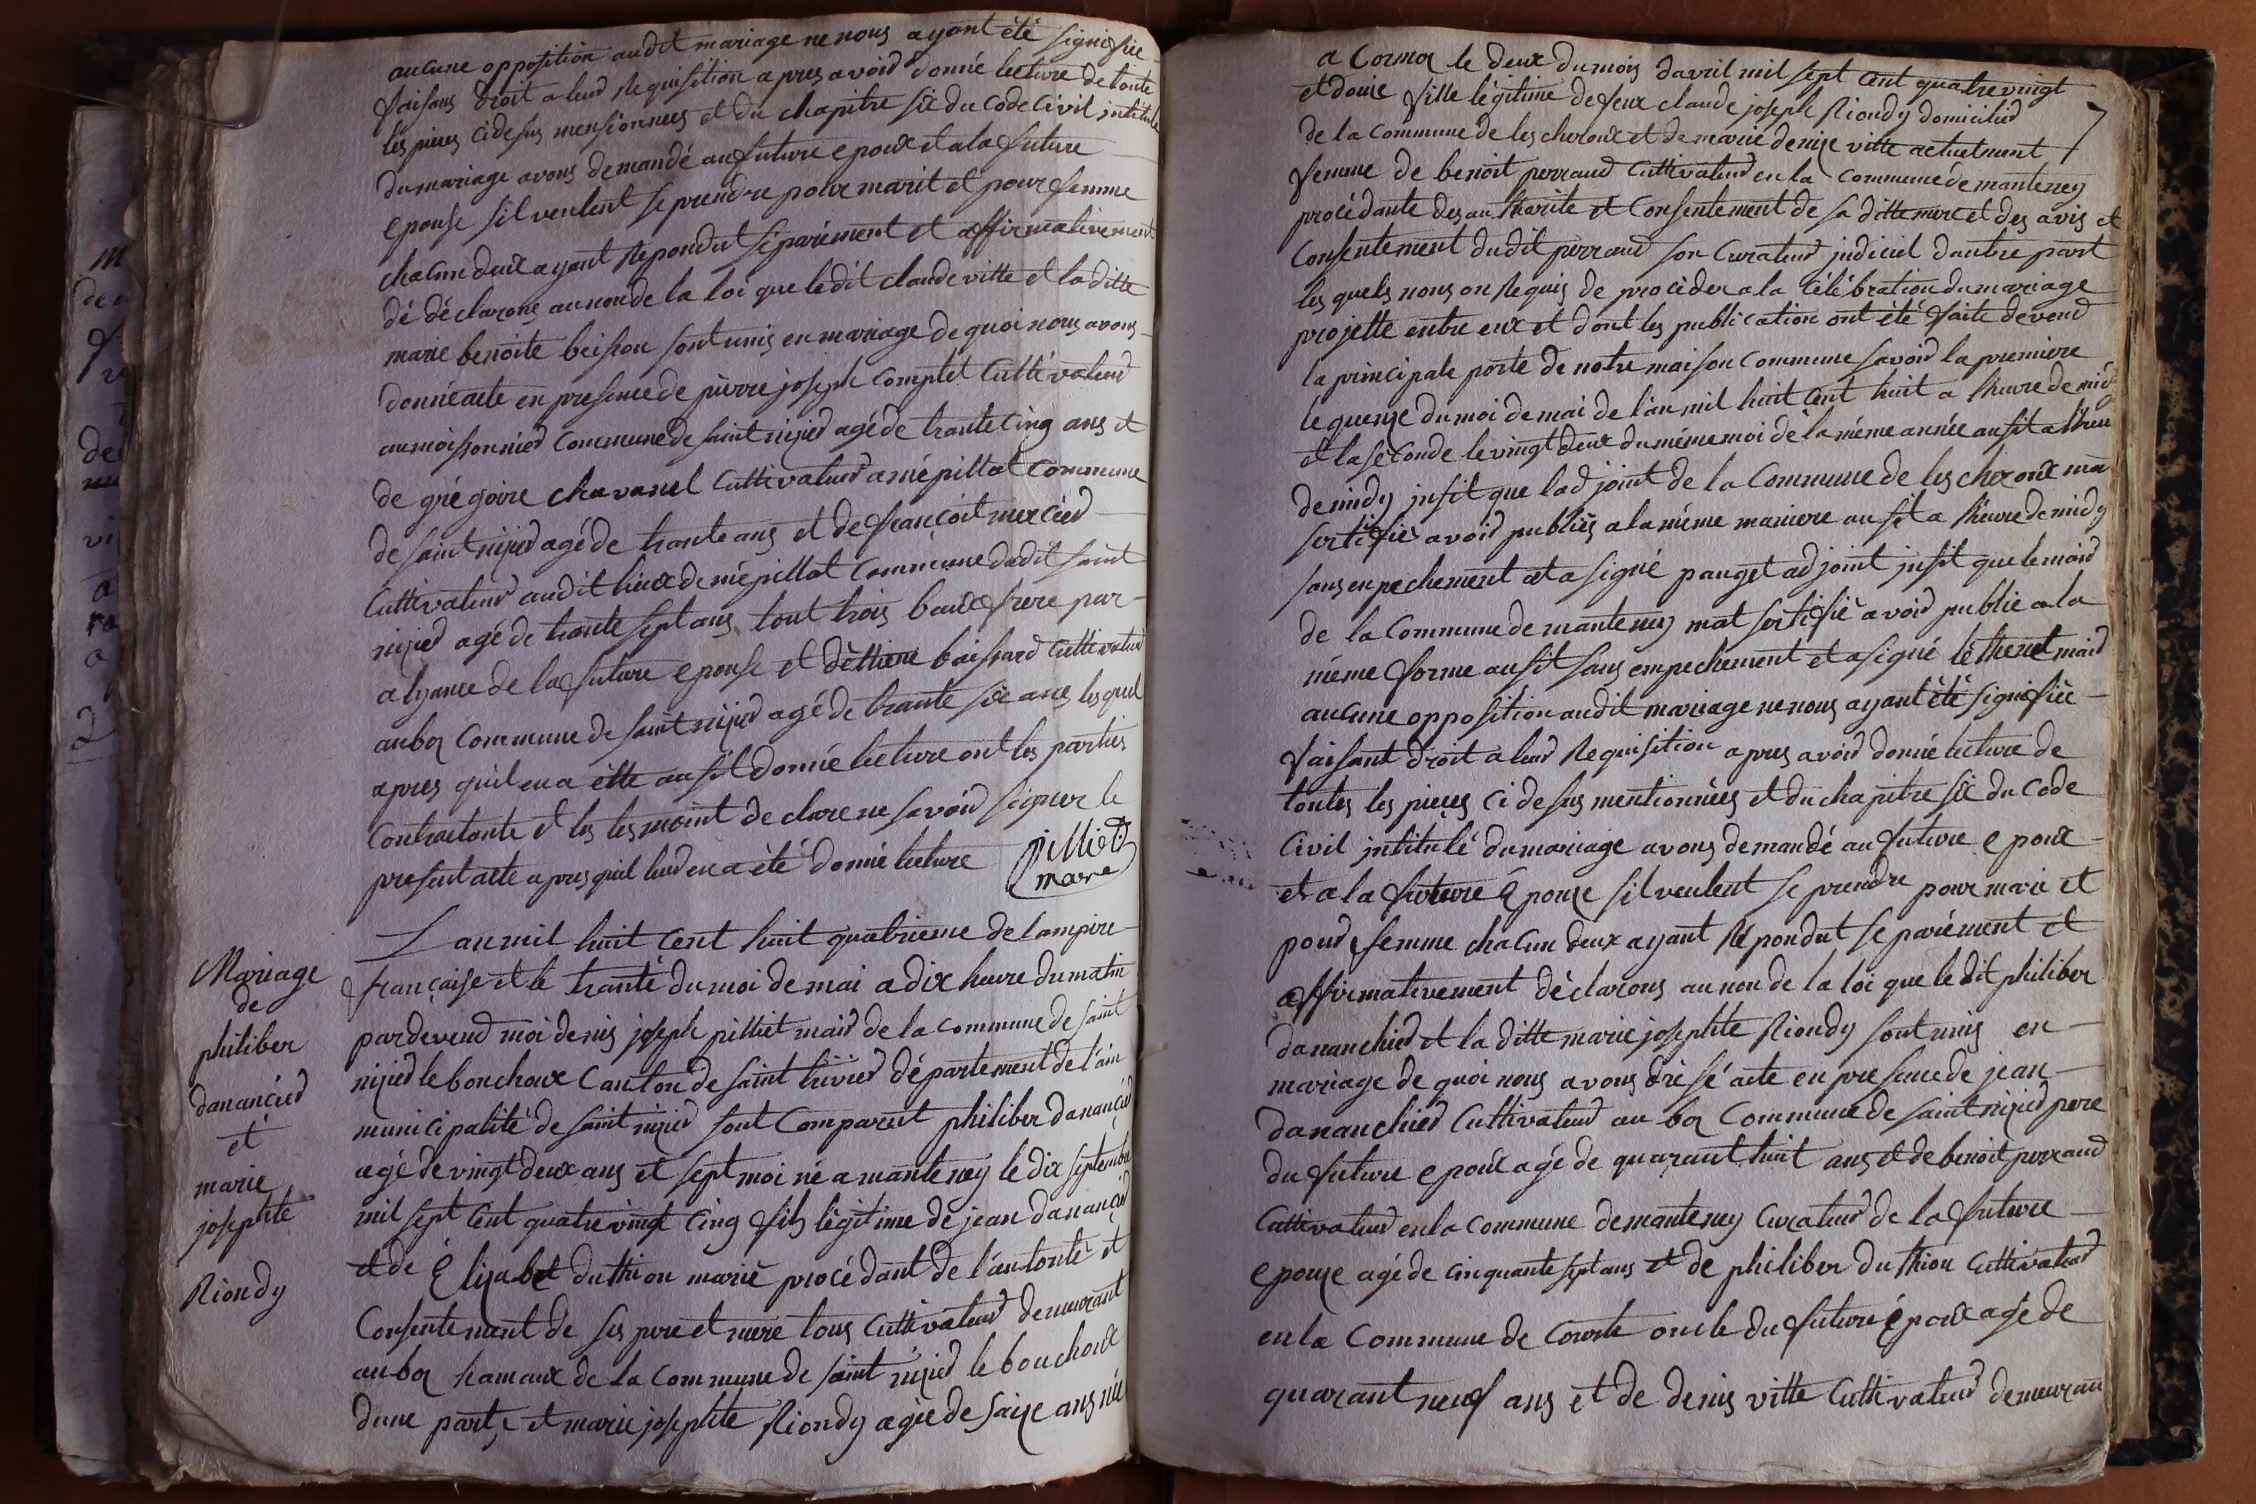 aucune opposition audit mariage ne nous ayant été signifiée
faisans droit a leur Requisition apres avoir donné lecture de toute
les pieces ci desus mensionnees et du chapitre six du code Civil intitulé
du mariage avons demandé au future epoux et a la future
epouse sil veulent se prendre pour marit et pour femme
chacun deux ayant Repondut séparément et affirmativement
dé déclarons au non de la loi que le dit claude vitte et la ditte
marie benoite beisson sont unis en mariage de quoi nous avons
donné acte en presence de pierre joseph complet Cultivateur
au moissonnier Commune de saint nizier agé de trante Cinq ans et
de grégoire chavanel Cultivateur a mépillat Commune
de saint nizier agé de trante ans et de françoit mercier
Cultivateur audit lieux de mépillat Commune dudit saint
nizier agé de trante sept ans tout trois baux frere par
alyance de la future epouse et déttiene baissard Cultivateur
au boz Commune de saint nizier agé de trante six ans les quel
apres quil en a étte ausit donné lecture ont les parties
Contractante et les tesmoint de clare ne savoir signer le
present acte apres quil leur en a été donné lecture
pilliet
maire
Mariage
de
philiber
dananciér
et
marie
josephte
Riondy
L an mil huit Cent huit quatrieme de lampire
française et le tranté du moi de mai a dix heure du matin
par devend moi denis joseph pilliet mair de la commune de saint
nizier le bouchoux Canton de saint trivier département de l'ain
municipalité de saint nizier sont Comparut philiber dananciér
agé de vingt deux ans et sept moi né a manteney le dix septembre
mil sept Cent quatre vingt Cinq fils légitime de jean dananciér
et de Elizabet duthion marié procédant de l'autorité et
Consentement de ses pere et mere tous Cultivateur demeurant
au boz hamaux de la Commune de saint nizier le bouchoux
dune part, et marie josephte Riondy agée de saize ans née
7
a Cormoz le deux du mois davril mil sept Cent quatre vingt
et doúze fille légitime de feux claude joseph Riondy domicilier
de la Commune de les cheroux et de marie denize vitte actuelment
femme de benoit perraud Cultivateur en la Commune de manteney
procédante des au thorité et Consentement de sa ditte mere et des avis et
Consentement dudit perraud son Curateur judiciel dautre part
les quels nous on Requis de procéder a la célébration du mariage
projette entre eux et dont les publication ont été faite devend
la principale porte de notre maison commune savoir la premiere
le quenze du moi de mai de l'an mil huit Cent huit a lheure de midy
et la séconde le vingt deux du méme moi de la méme année ausit a lheure
de midy insit que lad joint de la Commune de les cheroux ma
sertifié avoir publiés a la méme maniere ausit a lheure de midy
sans enpechement et a signé pauget adjoint insit que le mair
de la Commune de manteney mat sertifié avoir publie a la
méme forme ausit sans empechement et a signé léthenet mair
aucune opposition audit mariage ne nous ayant été signifiée
faisant droit a leur Requisition apres avoir donné lecture de
toutes les pieces ci desus mentionnées et du chapitre six du Code
Civil intitulé du mariage avons demandé au future epoux
et a la future Epouze sil veulent se prendre pour marie et
pour femme chacun deux ayant Repondut separément et
affirmativement déclarons au non de la loi que le dit philiber
dananchier et la ditte marie josephte Riondy sont unis en
mariage de quoi nous avons drésé acte en presence de jean
dananchier Cultivateur au boz Commune de saint nizier pere
du future epoux agé de quarant huit ans et de benoit perraud
Cultivateur en la commune de manteney Curateur de la future
epouze agé de cinquante sept ans et de philiber duthion Cultivateur
en la Commune de Courte oncle du future époux agé de
quarant neuf ans et de denis vitte Cultivateur demeuran